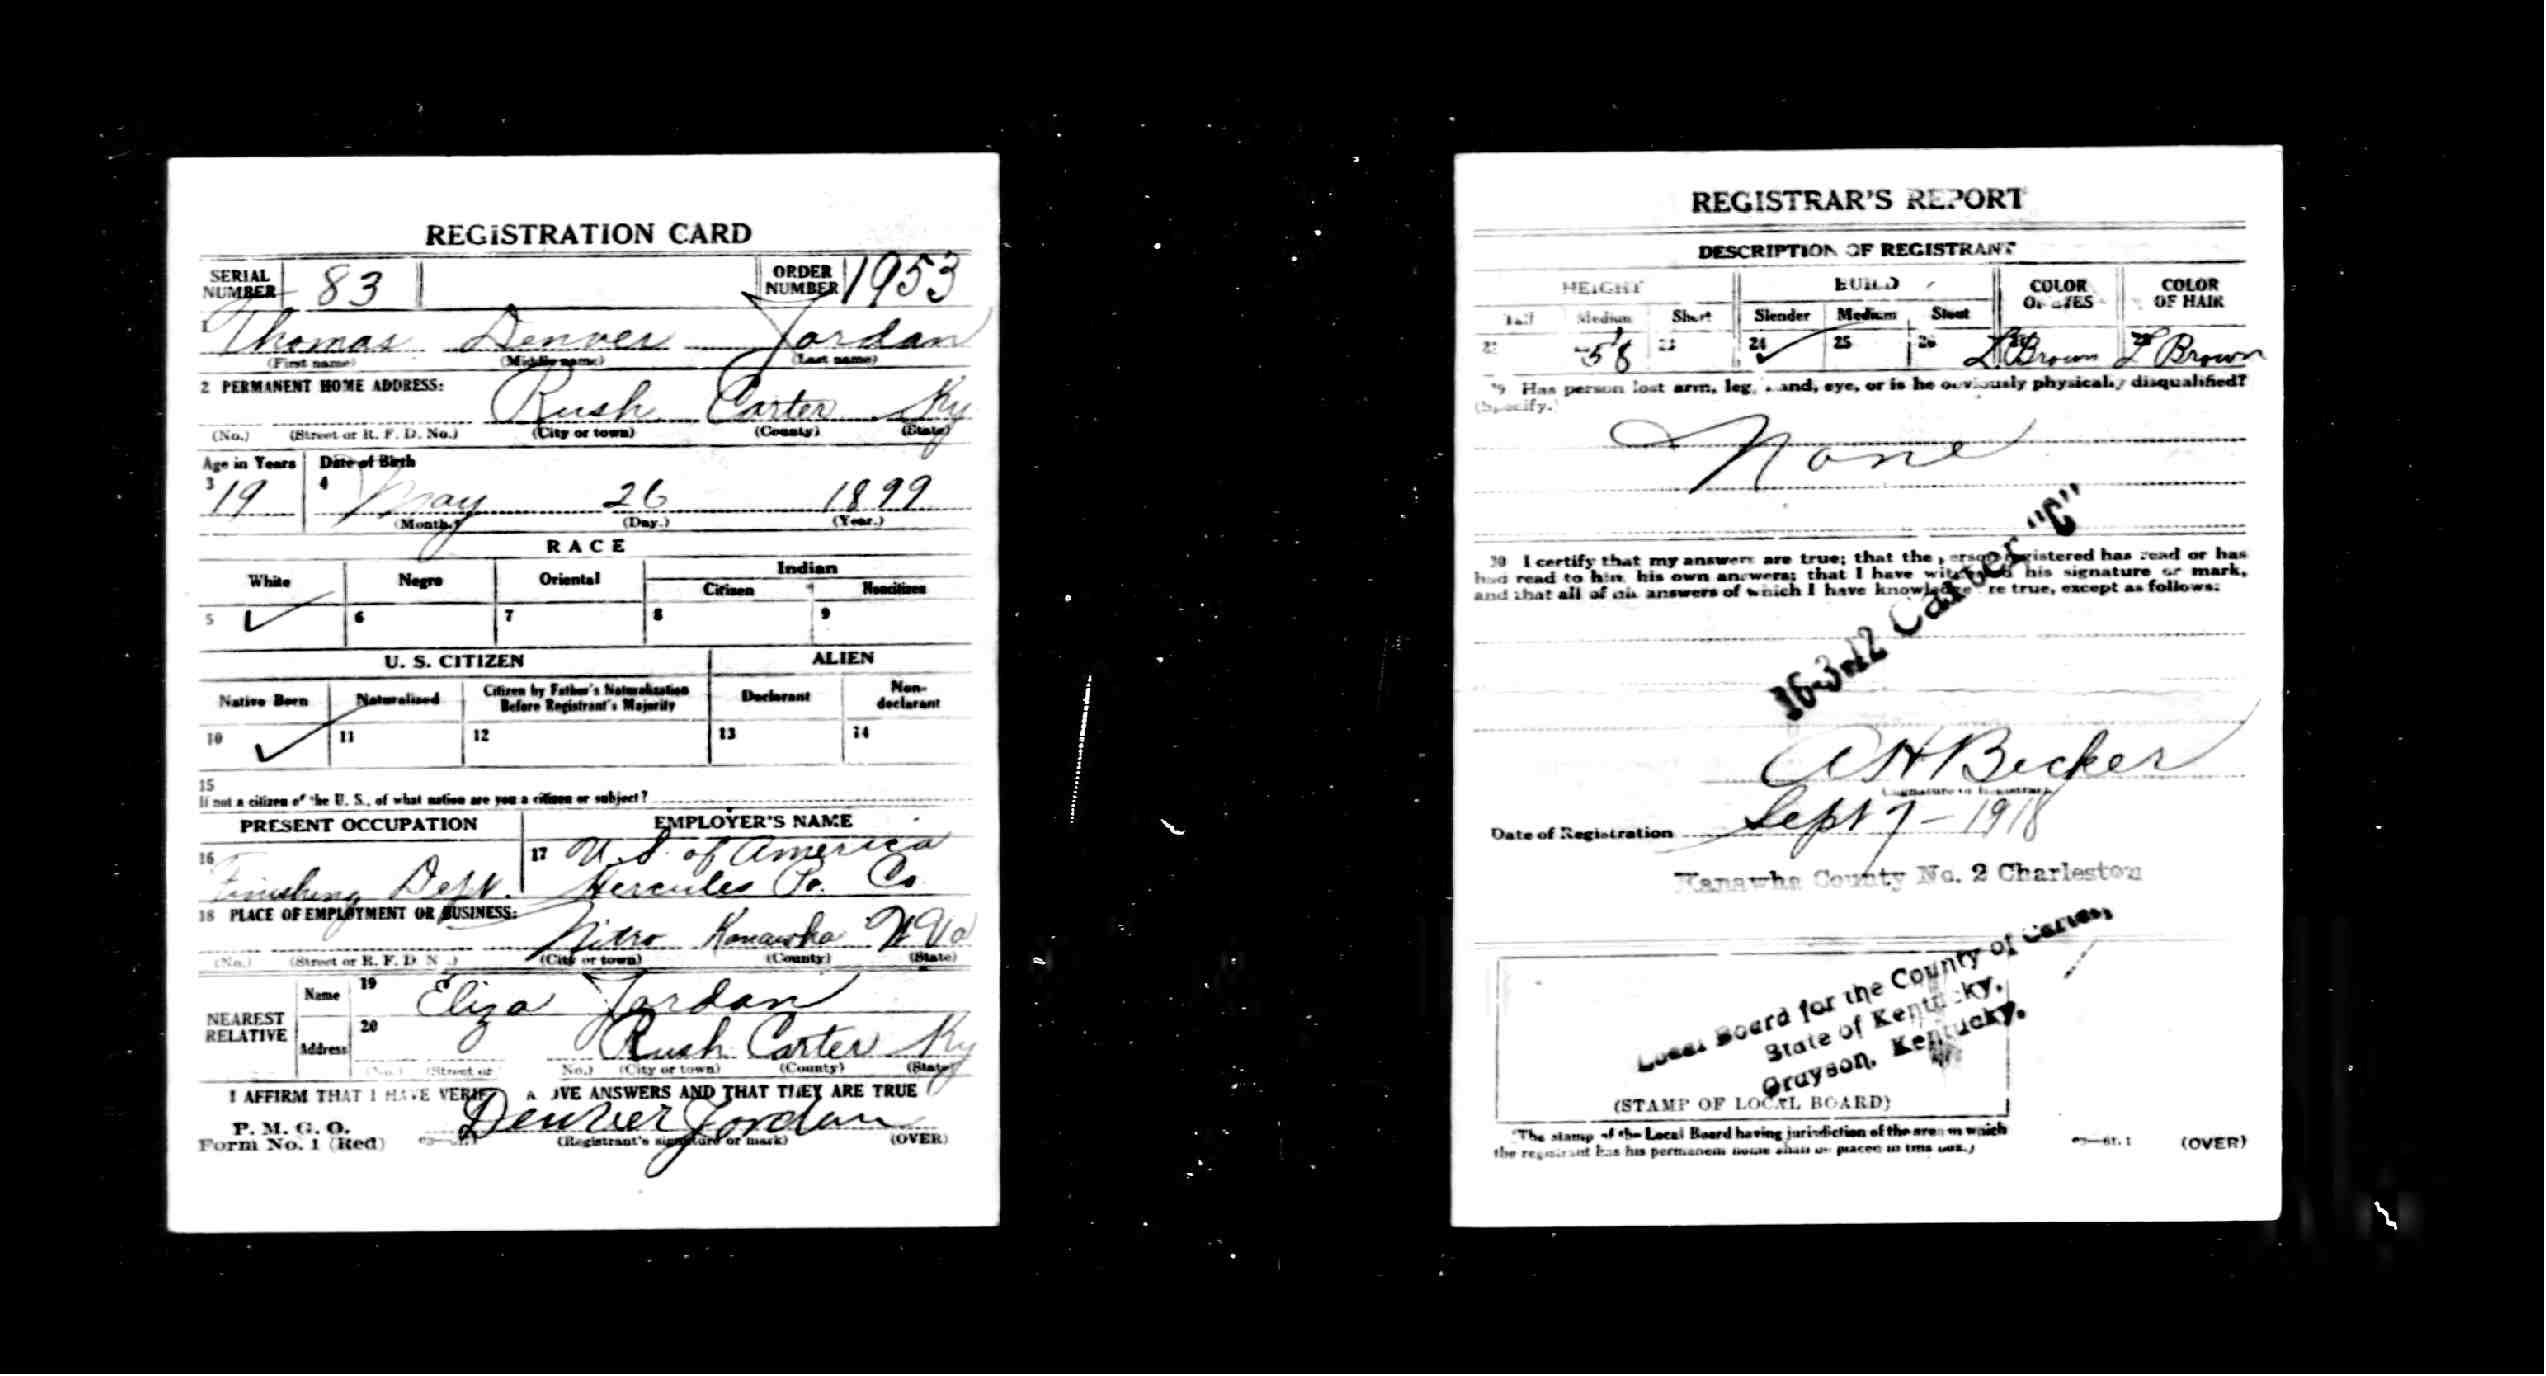 REGISTRATION CARD
SERIAL NUMBER 83 ORDER NUMBER 1953
1 Thomas Denver Jordan
(First name) (Middle name) (Last name)
2 PERMANENT HOME ADDRESS:
Rush Carter Ky
(No.) (Street or R. F. D. No.) (City or town) (County) (State)
Age in Years Date of Birth
3 19 4 May 26 1899
(Month.) (Day.) (Year.)
RACE
White Negro Oriental Indian
Citizen Noncitizen
5 6 7 8 9
U. S. CITIZEN ALIEN
Native Born Naturalized Citizen by Father's Naturalization Before Registrant's Majority Declarant Non-declarant
10 11 12 13 14
15
If not a citizen of the U. S., of what nation are you a citizen or subject?
PRESENT OCCUPATION EMPLOYER'S NAME
16 Finishing Dept. 17 U.S. of America
Hercules Po. Co.
18 PLACE OF EMPLOYMENT OR BUSINESS:
Nitro Kanawha W Va
(No.) (Street or R. F. D. N .) (City or town) (County) (State)
NEAREST RELATIVE Name 19 Eliza Jordan
Address 20 Rush Carter Ky
(No.) (Street or No.) (City or town) (County) (State)
I AFFIRM THAT I HAVE VERIF A OVE ANSWERS AND THAT THEY ARE TRUE
P. M. G. O.
Form No. 1 (Red) Denver Jordan
(Registrant's signature or mark) (OVER)
REGISTRAR'S REPORT
DESCRIPTION OF REGISTRANT
HEIGHT BUILD COLOR OF EYES COLOR OF HAIR
Tall Medium Short Slender Medium Stout
21 5'8 23 24 25 26 L Brown L Brown
29 Has person lost arm, leg, hand, eye, or is he obviously physically disqualified?
(Specify.)
None
30 I certify that my answers are true; that the person registered has read or has
had read to him his own answers; that I have witnessed his signature or mark,
and that all of his answers of which I have knowledge are true, except as follows:
16-3-12 Carter "C"
A H Becker
(Signature of Registrar)
Date of Registration Sept 7 - 1918
Kanawha County No. 2 Charleston
Local Board for the County of Carter,
State of Kentucky,
Grayson, Kentucky.
(STAMP OF LOCAL BOARD)
(The stamp of the Local Board having jurisdiction of the area in which
the registrant has his permanent home shall be placed in this box.)
(OVER)